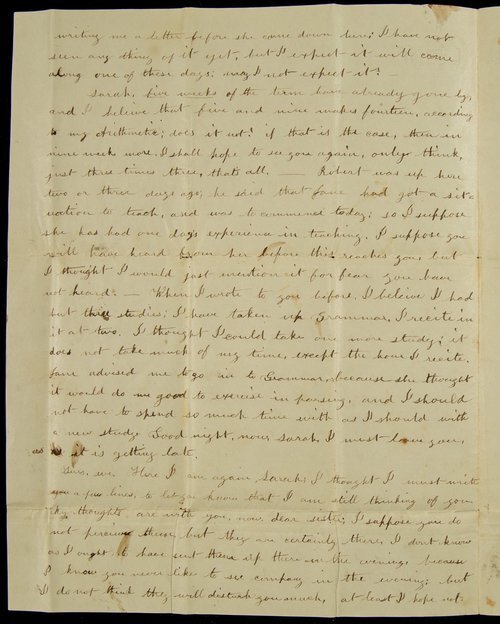 writing me a letter before she came down here; I have not
seen any thing of it yet, but I expect it will come
along one of these days; may I not expect it?
Sarah, five weeks of the term have already gone by,
and I believe that five and nine makes fourteen, according
to my Arithmetic; does it not? if that is the case, then in
nine weeks more, I shall hope to see you again, only think,
just three times three, thats all. — Robert was up here
two or three days ago; he said that Jane had got a sit-
uation to teach, and was to commence today; so I suppose
she has had one days experience in teaching. I suppose you
will have heard from her before this reaches you but
I thought I would just mention it for fear you have
not heard. — When I wrote to you before, I beleive I had
but three studies; I have taken up Grammar, I recite in
it at two. I thought I could take one more study; it
does not take much of my time, except the hour I recite.
Jane advised me to go in to Grammar, because she thought
it would do me good to exercise in parsing, and I should
not have to spend so much time with as I should with
a new study. Good night, now Sarah, I must leave you,
as it is getting late.
Here I am again, Sarah; I thought I must write
you a few lines, to let you know that I am still thinking of you
My thoughts are with you, now, dear sister; I suppose you do
not perceive them, but they are certainly there, I dont know
as I ought to have sent them up there in the evening, because
I know you never like to see company in the evening; but
I do not think they will disturb you much, at least I hope not.